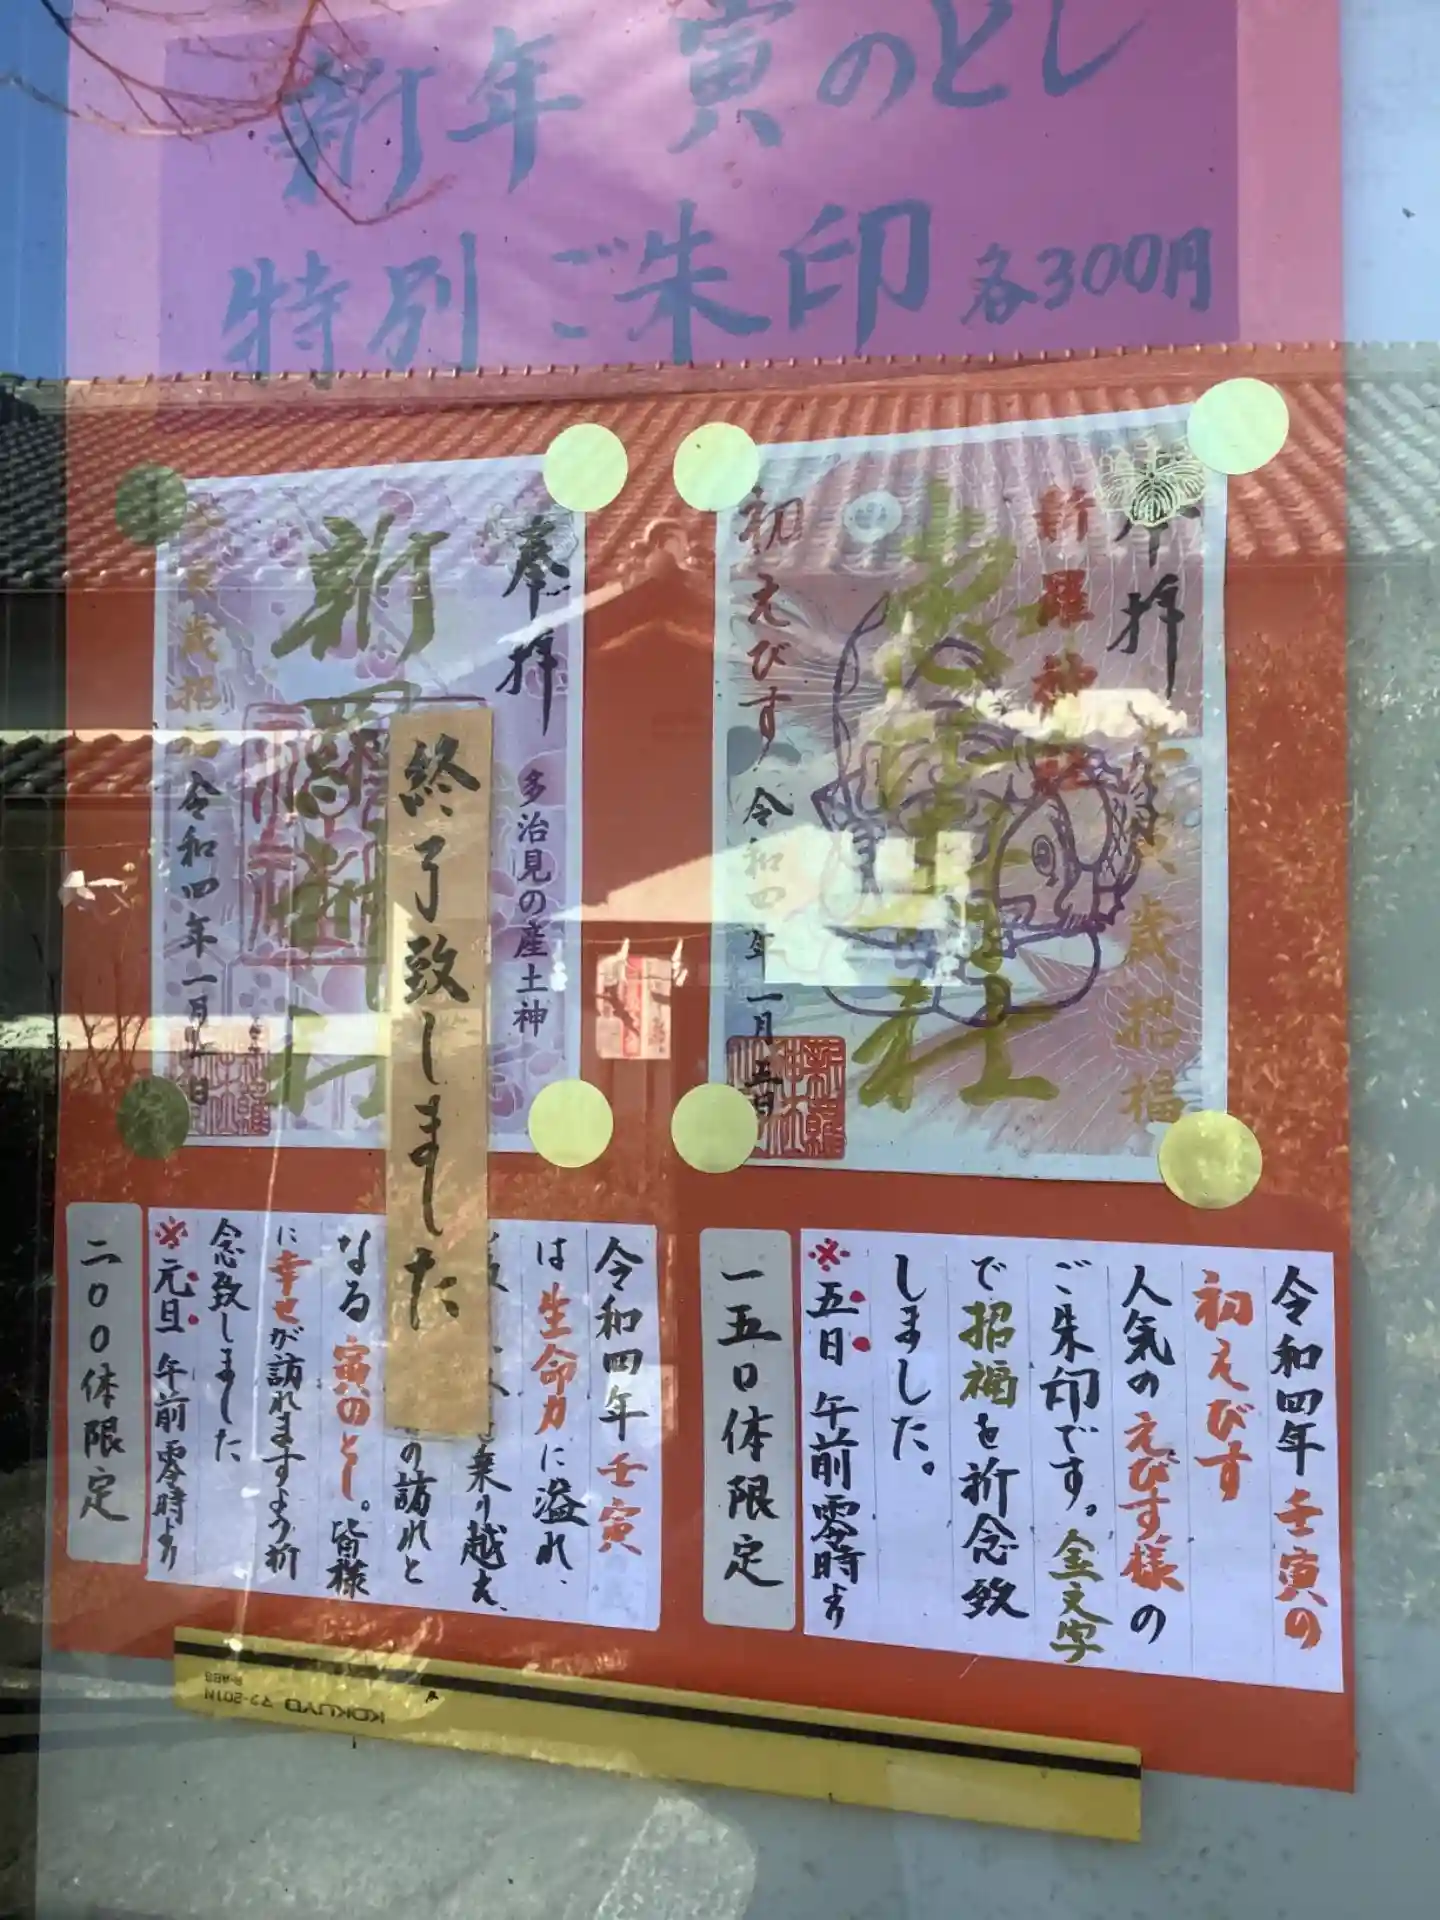 新年 寅のとし
特別 ご朱印 各300円
奉拝
新羅神社
多治見の産土神
令和四年一月
終了致しました
奉拝
新羅神社
恵比寿
初えびす
令和四年一月五日
歳招福
新羅神社
令和四年 壬寅
は生命力に溢れ、
乗り越え、
の訪れと
なる寅のとし。皆様
に幸せが訪れますよう祈
念致しました
※元旦 午前零時より
二〇〇体限定
令和四年 壬寅の
初えびす
人気のえびす様の
ご朱印です。金文字
で招福を祈念致
しました。
※五日 午前零時より
一五〇体限定
KOKUYO マク-201N